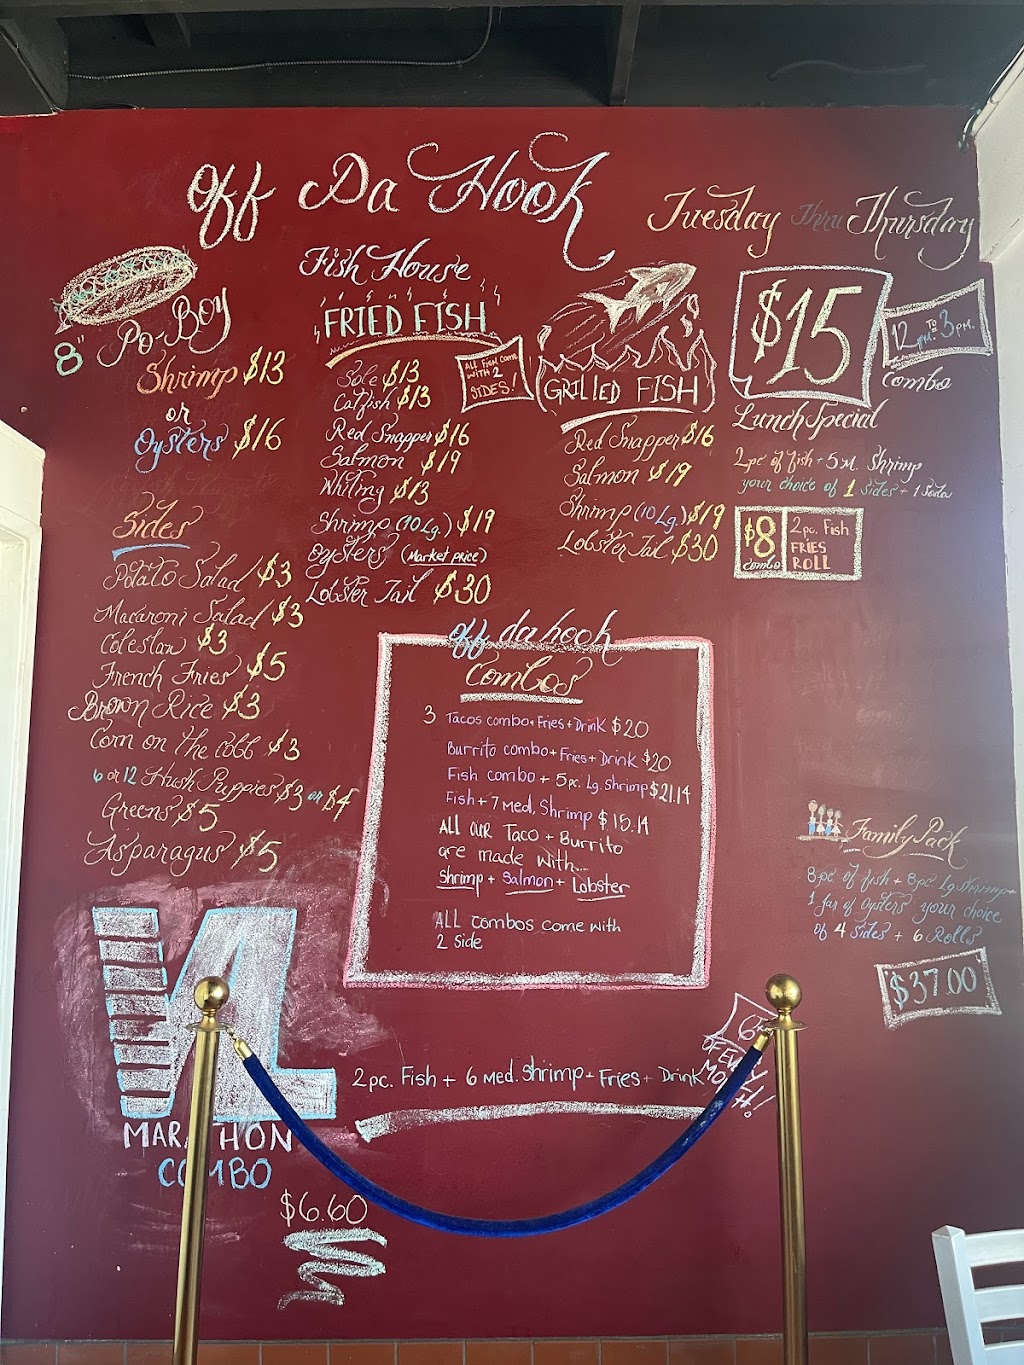 Off Da Hook
Fish House
Tuesday Thru Thursday
8" Po-Boy
Shrimp $13
or
Oysters $16
Sides
Potato Salad $3
Macaroni Salad $3
Coleslaw $3
French Fries $5
Brown Rice $3
Corn on the cobb $3
6 or 12 Hush Puppies $3 or $4
Greens $5
Asparagus $5
FRIED FISH
ALL FISH COME
WITH 2
SIDES!
Sole $13
Catfish $13
Red Snapper $16
Salmon $19
Whiting $13
Shrimp (10 Lg.) $19
Oysters (Market price)
Lobster Tail $30
GRILLED FISH
Red Snapper $16
Salmon $19
Shrimp (10 Lg.) $19
Lobster Tail $30
$15
12 pm. To 3 pm.
Combo
Lunch Special
2pc of fish + 5 M. Shrimp
your choice of 1 Sides + 1 Soda
$8
combo
2 pc. Fish
FRIES
ROLL
off da hook
Combos
3 Tacos combo + Fries + Drink $20
Burrito combo + Fries + Drink $20
Fish combo + 5 pc. Lg. Shrimp $21.14
Fish + 7 Med, Shrimp $15.14
ALL OUR Taco + Burrito
are made with...
Shrimp + Salmon + Lobster
ALL combos come with
2 Side
Family Pack
8 pc of fish + 8 pc Lg Shrimp +
1 Jar of Oysters your choice
of 4 Sides + 6 Rolls
$37.00
MARATHON
COMBO
2 pc. Fish + 6 Med. Shrimp + Fries + Drink
OF EVERY
MONTH!
$6.60